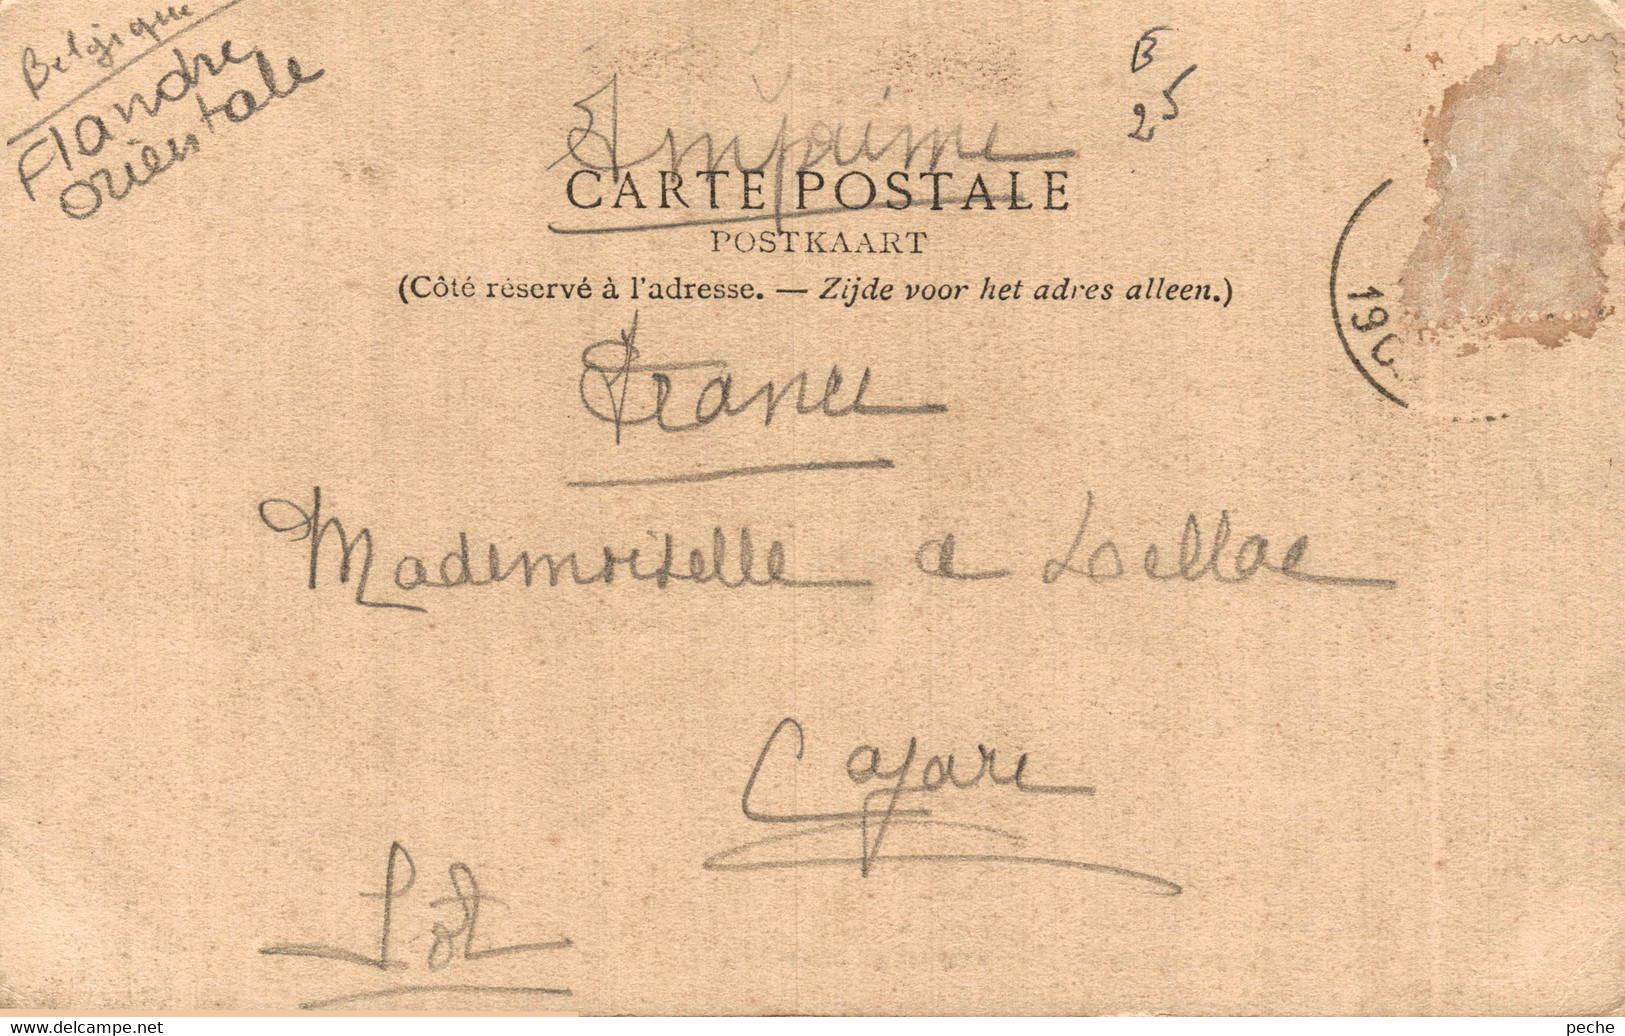 Belgique
Flandre
orientale
B
25
Imprimé
CARTE POSTALE
POSTKAART
(Côté réservé à l'adresse. — Zijde voor het adres alleen.)
190
France
Mademoiselle a
Cajarc
Lot
www.delcampe.net
peche